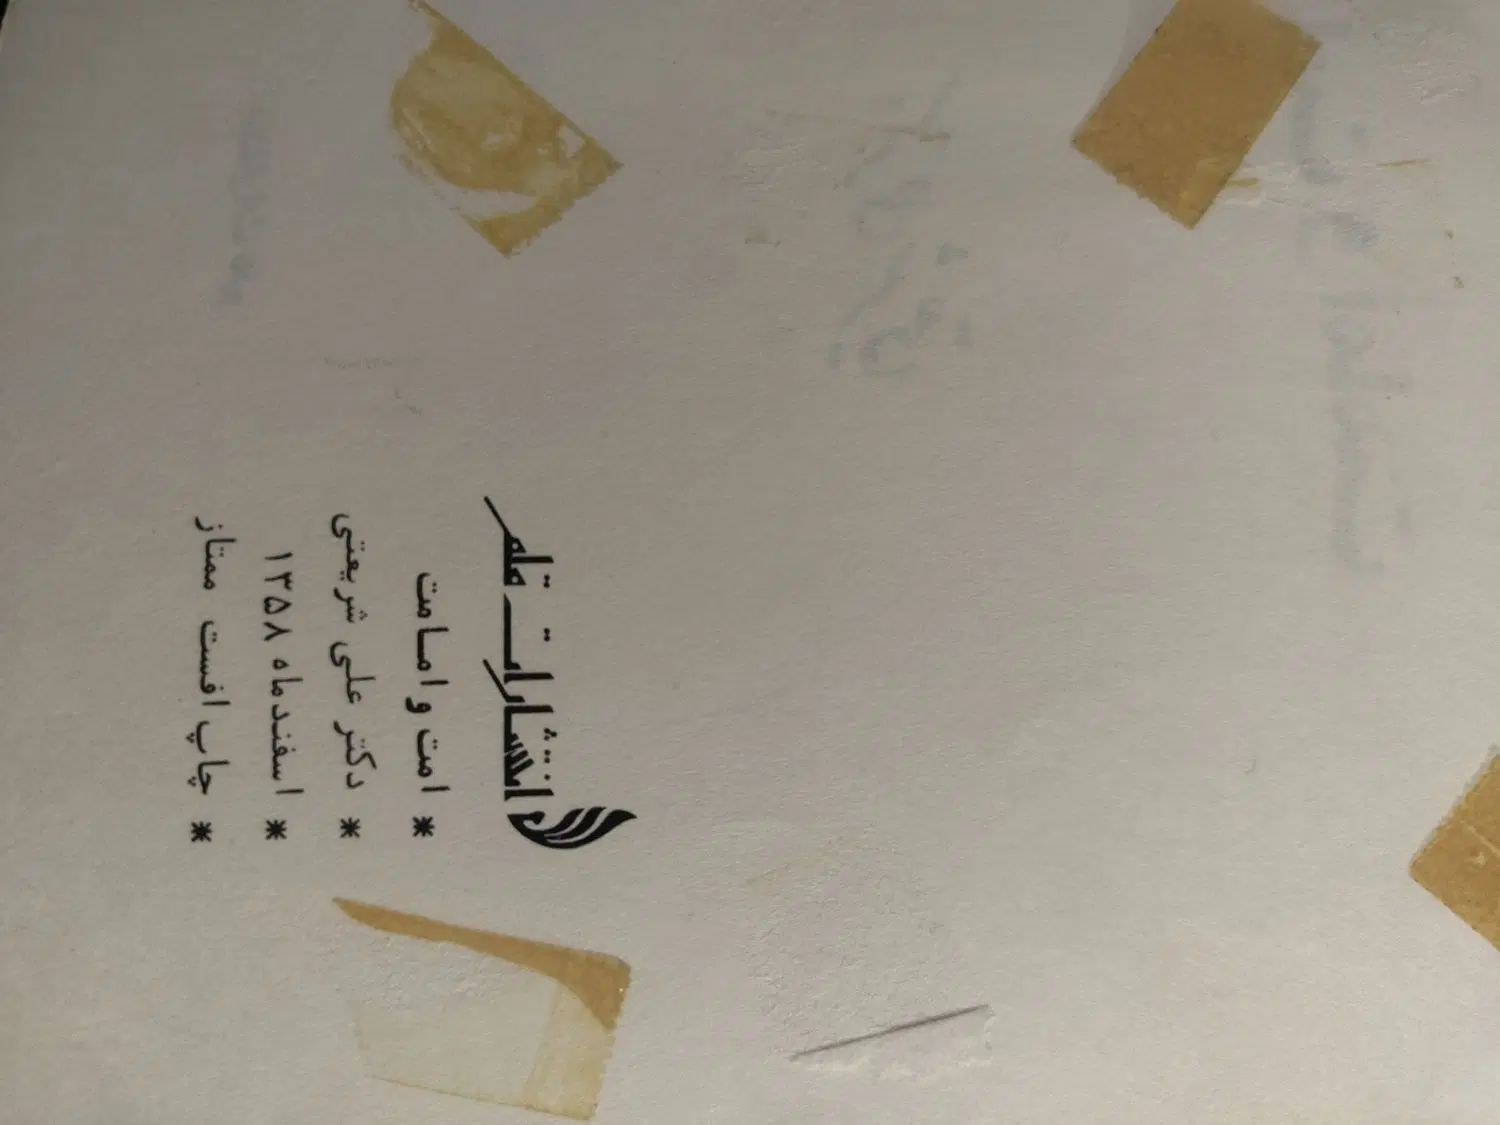 انتشارات قلم
* امت و امامت
* دکتر علی شریعتی
* اسفندماه ۱۳۵۸
* چاپ افست ممتاز